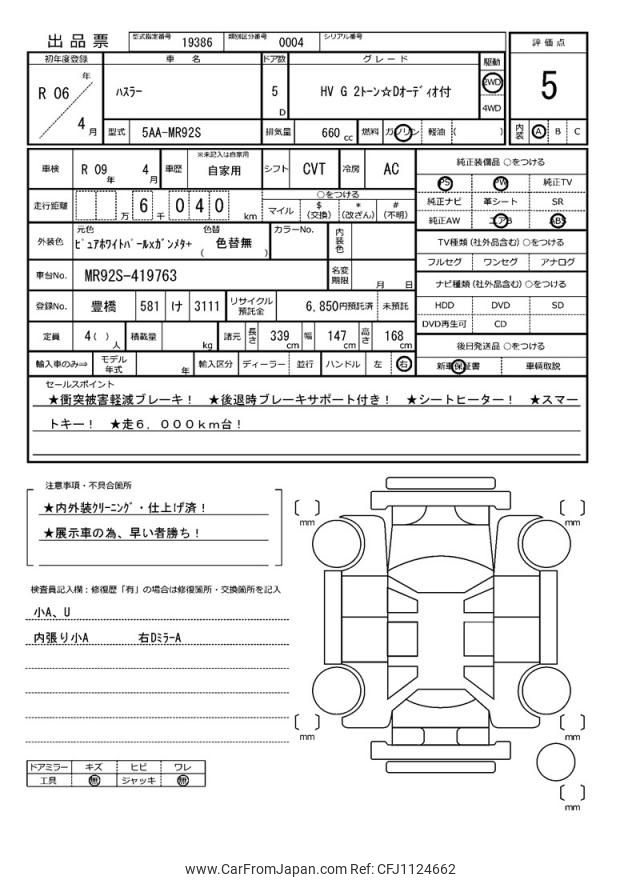 出品票 型式指定番号 19386 類別区分番号 0004 シリアル番号
評価点
5
内装 A B C
初年度登録 車名 ドア数 グレード 駆動
R 06 年 4 月 ﾊｽﾗｰ 5 D HV G 2トーン☆Dオーディオ付 2WD 4WD
型式 5AA-MR92S 排気量 660 cc 燃料 ガソリン 軽油 ( )
車検 R 09 年 4 月 車歴 ※未記入は自家用 自家用 シフト CVT 冷房 AC
走行距離 万 6 千 0 4 0 km ○をつける
マイル $ (交換) * (改ざん) # (不明)
外装色 元色 ﾋﾟｭｱﾎﾜｲﾄﾊﾟｰﾙxｶﾞﾝﾒﾀ+ 色替 ( 色替無 ) カラーNo. 内装色
車台No. MR92S-419763 名変期限 月 日
登録No. 豊橋 581 け 3111 リサイクル預託金 6,850円 預託済 未預託
定員 4( ) 人 積載量 kg 諸元 長さ 339 cm 幅 147 cm 高さ 168 cm
輸入車のみ⇒ モデル年式 年 輸入区分 ディーラー 並行 ハンドル 左 右
純正装備品 ○をつける
PS PW 純正TV
純正ナビ 革シート SR
純正AW エアB ABS
TV種類(社外品含む) ○をつける
フルセグ ワンセグ アナログ
ナビ種類(社外品含む) ○をつける
HDD DVD SD
DVD再生可 CD
後日発送品 ○をつける
新車保証書 車輌取説
セールスポイント
★衝突被害軽減ブレーキ! ★後退時ブレーキサポート付き! ★シートヒーター! ★スマー
トキー! ★走6，000km台!
注意事項・不具合箇所
★内外装ｸﾘｰﾆﾝｸﾞ・仕上げ済!
★展示車の為、早い者勝ち!
検査員記入欄：修復歴「有」の場合は修復箇所・交換箇所を記入
小A、U
内張り小A 右DﾐﾗｰA
ドアミラー キズ ヒビ ワレ
工具 無 ジャッキ 無
mm mm
mm mm
mm
www.CarFromJapan.com Ref: CFJ1124662